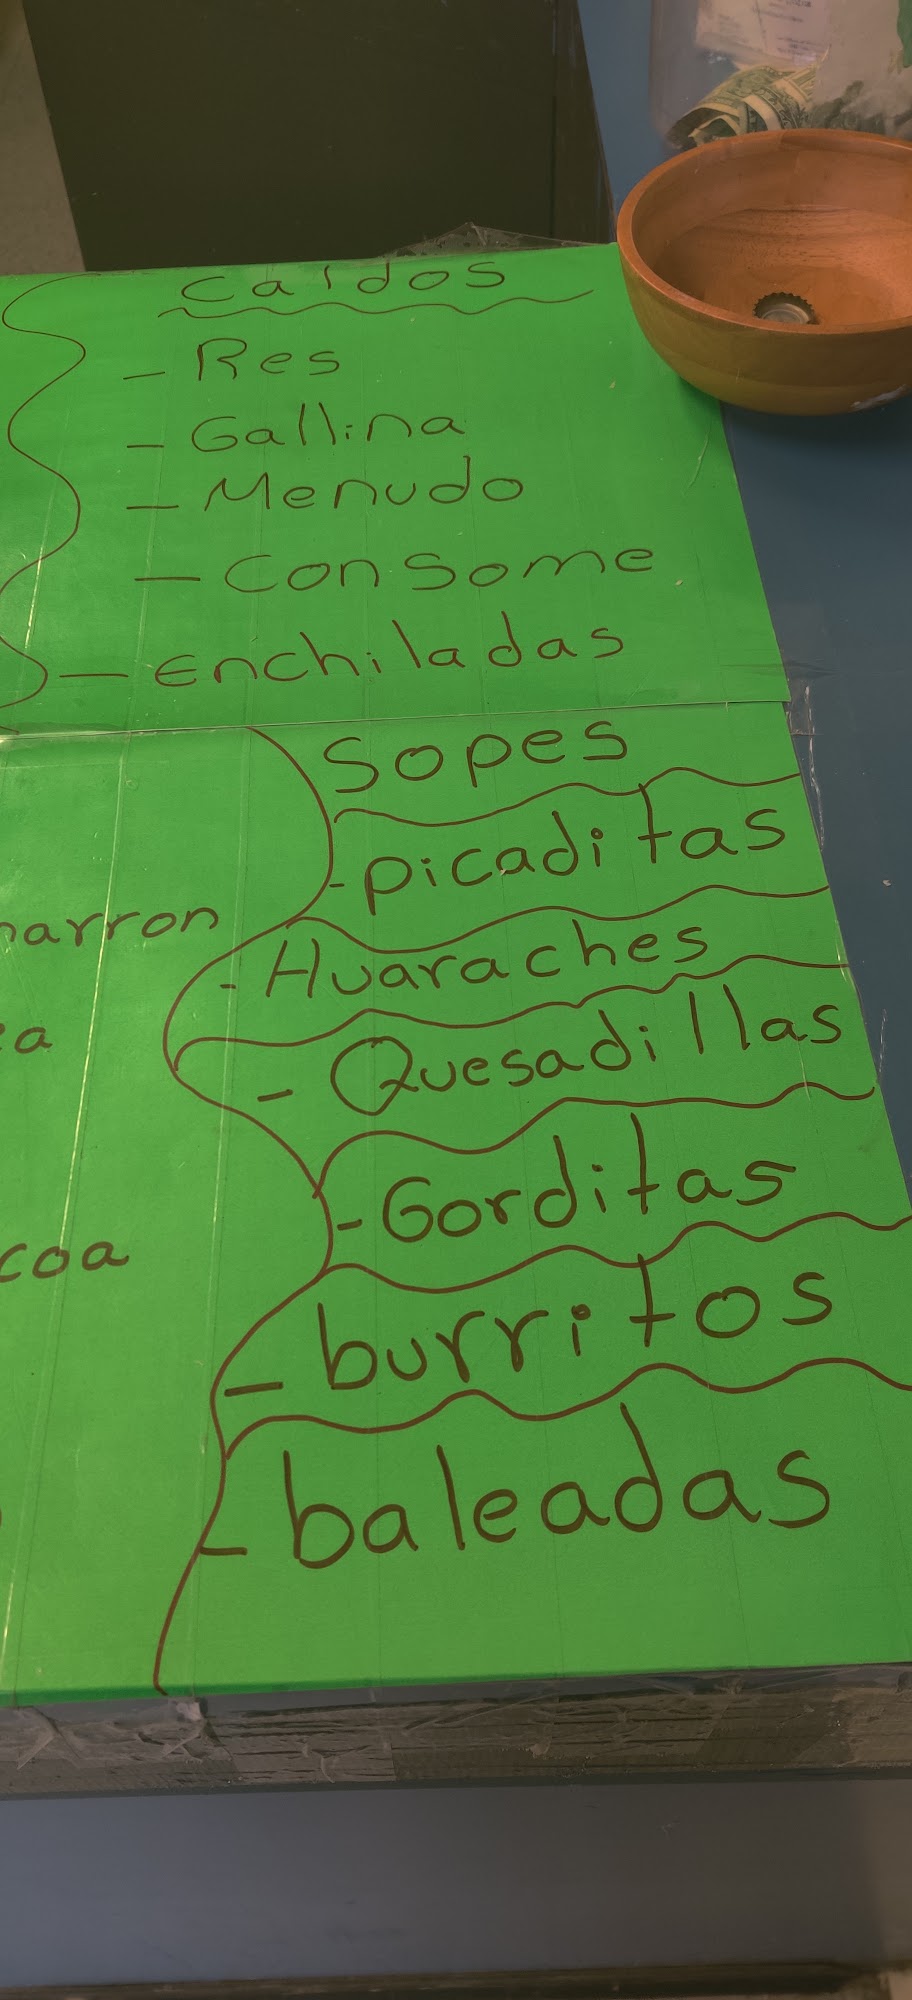 Caldos
- Res
- Gallina
- Menudo
- Consome
- Enchiladas
Sopes
- Picaditas
- Huaraches
- Quesadillas
- Gorditas
- burritos
- baleadas